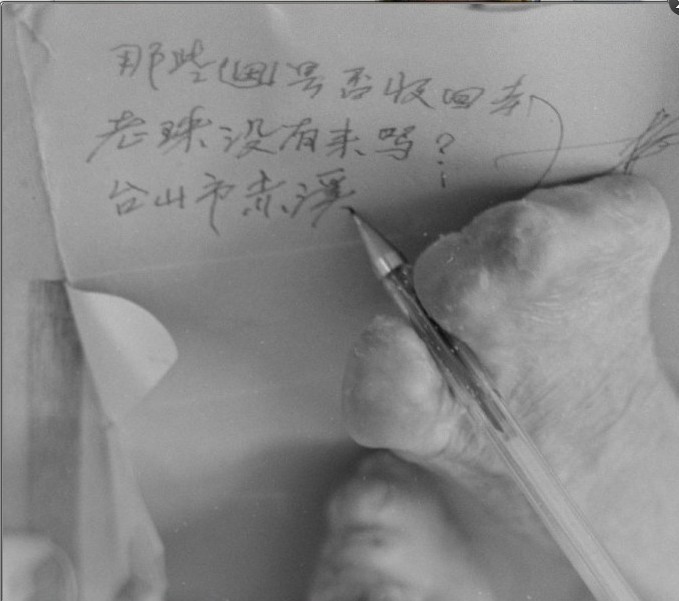 那些(画)是否收回来
老珠没有来吗?
台山市赤溪